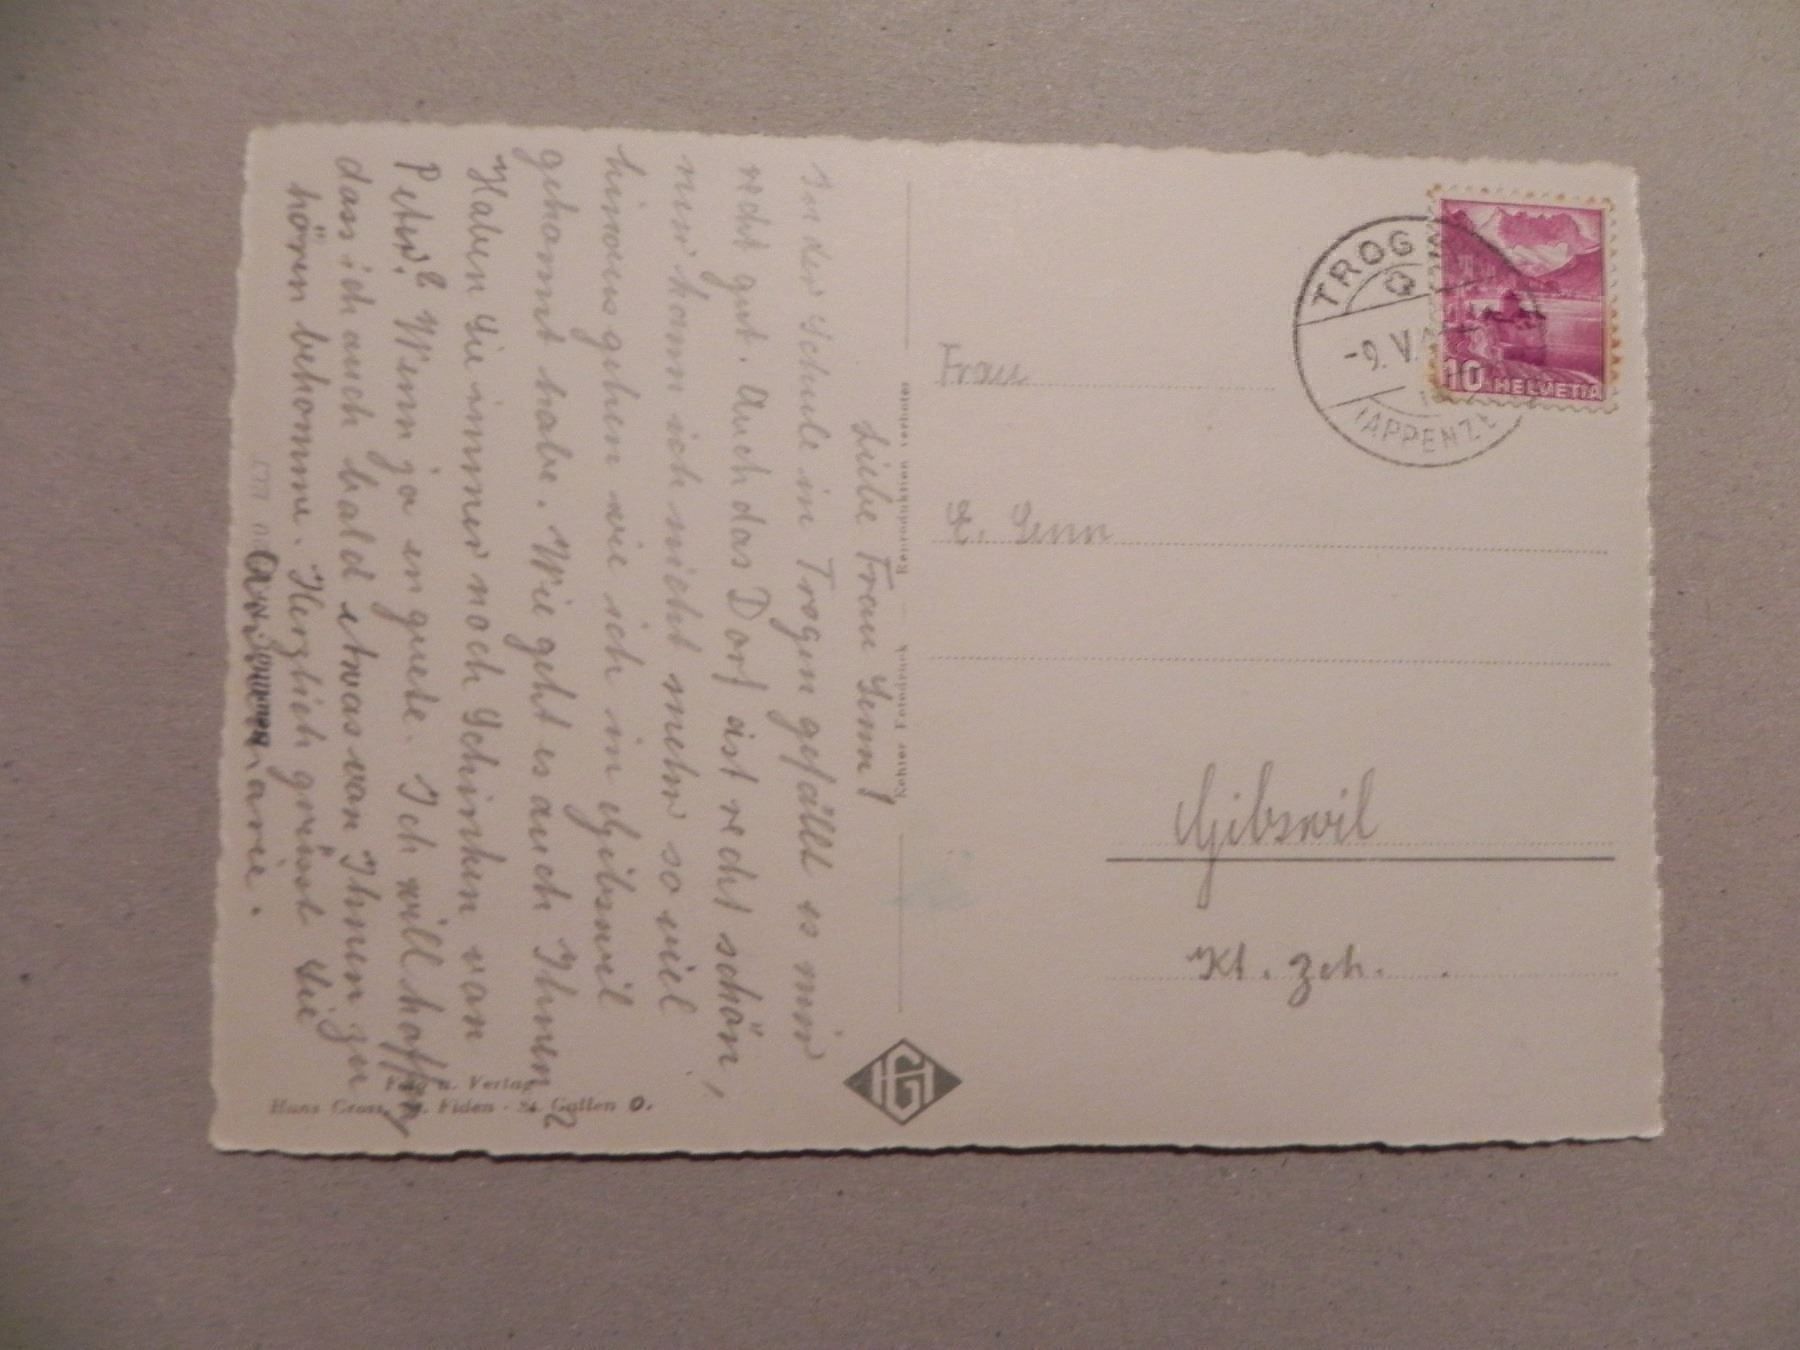 Liebe Frau Senn!
In der Schule in Trogen gefällt es mir
recht gut. Auch das Dorf ist recht schön,
nur kann ich nicht mehr so viel
hinausgehen wie ich in Gibswil
gekonnt habe. Wie geht es auch Ihnen?
Haben Sie immer noch Schinken von
Peter? Wenn ja en guete. Ich will hoffen,
dass ich auch bald etwas von Ihnen zu
hören bekomme. Herzlich grüsst Sie
Annemarie.
Frau
E. Senn
Gibswil
Kt. Zch.
TROGEN
-9. V.
(APPENZELL
10 HELVETIA
Echter Fotodruck
Reproduktion verboten
HG
Foto u. Verlag
Hans Gross, St. Fiden - St. Gallen O.